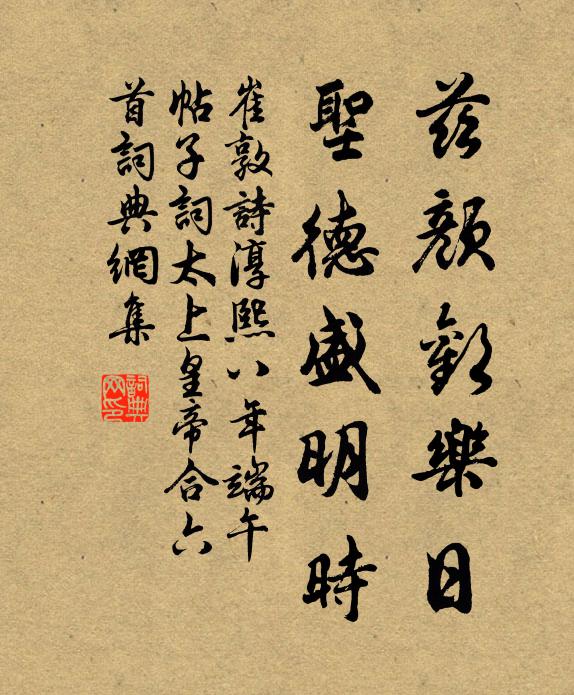 慈顏歡樂日
聖德盛明時
崔敦詩淳熙八年端午
帖子詞太上皇帝合六
首詞典網集
詞典網印